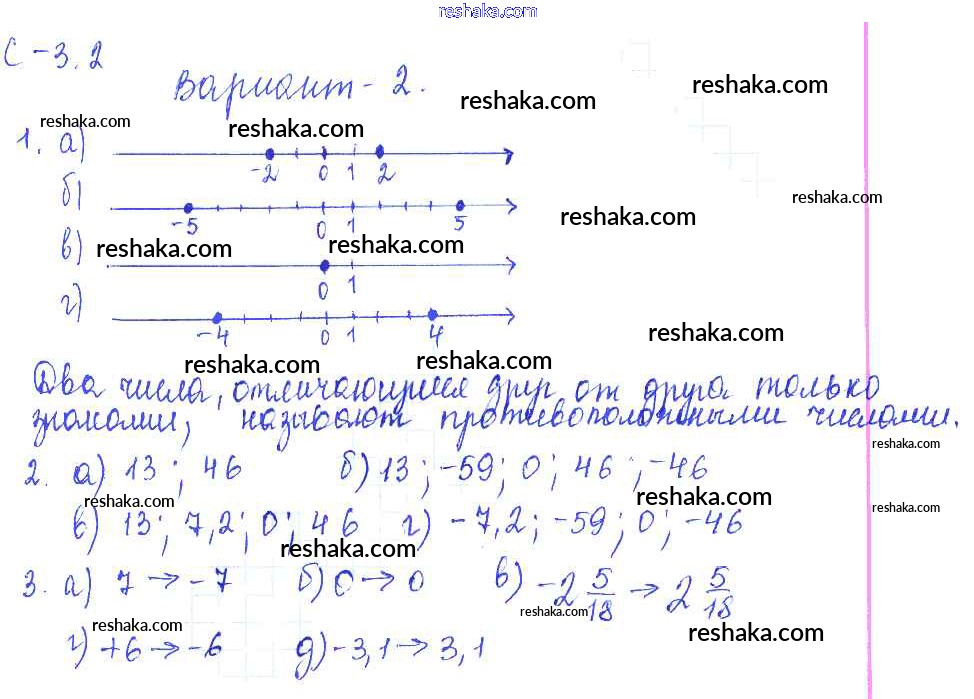 reshaka.com
С-3.2
Вариант-2.
reshaka.com
reshaka.com
reshaka.com
reshaka.com
1. а)
-2 0 1 2
reshaka.com
б)
-5 0 1 5
reshaka.com
reshaka.com
reshaka.com
в)
0 1
г)
-4 0 1 4
reshaka.com
reshaka.com
reshaka.com
Два числа, отличающиеся друг от друга только
знаками, называют противоположными числами.
reshaka.com
2. а) 13; 46 б) 13; -59; 0; 46; -46
reshaka.com
reshaka.com
reshaka.com
в) 13; 7,2; 0; 46 г) -7,2; -59; 0; -46
reshaka.com
3. а) 7 → -7 б) 0 → 0 в) -2 5/18 → 2 5/18
reshaka.com
reshaka.com
reshaka.com
г) +6 → -6 д) -3,1 → 3,1